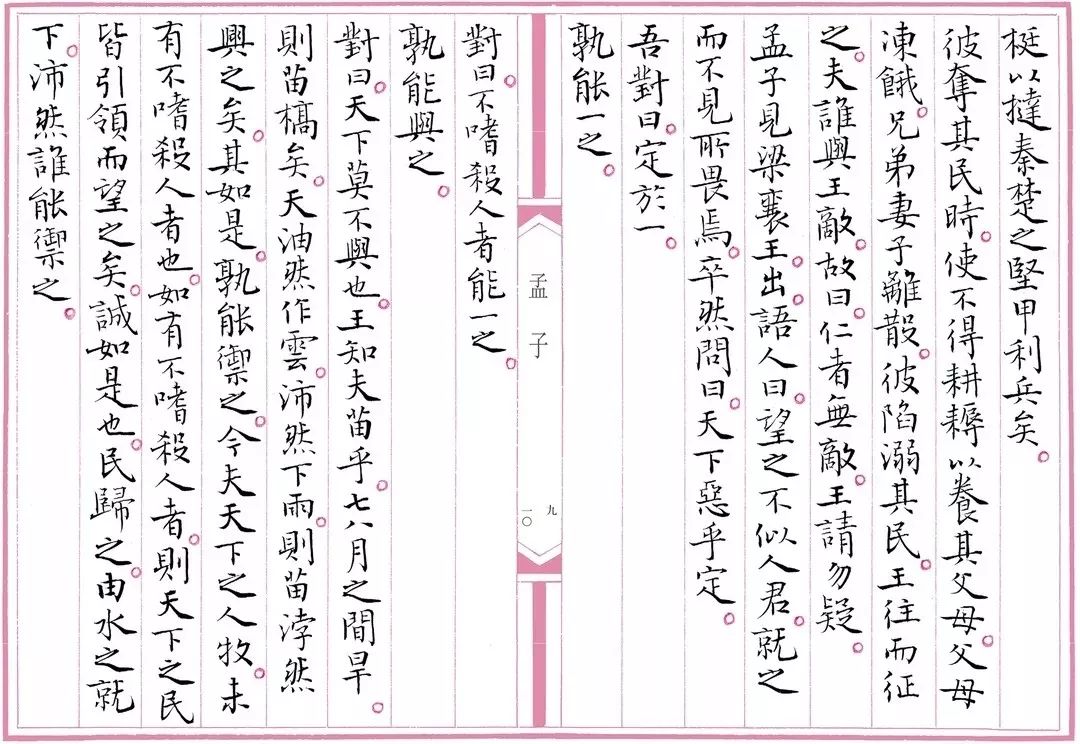 梃以撻秦楚之堅甲利兵矣。
彼奪其民時。使不得耕耨以養其父母。父母
凍餓。兄弟妻子離散。彼陷溺其民。王往而征
之。夫誰與王敵。故曰。仁者無敵。王請勿疑。
孟子見梁襄王。出。語人曰。望之不似人君。就之
而不見所畏焉。卒然問曰。天下惡乎定。
吾對曰。定於一。
孰能一之。
孟子
九
一〇
對曰。不嗜殺人者能一之。
孰能與之。
對曰。天下莫不與也。王知夫苗乎。七八月之間旱。
則苗槁矣。天油然作雲。沛然下雨。則苗浡然
興之矣。其如是。孰能禦之。今夫天下之人牧。未
有不嗜殺人者也。如有不嗜殺人者。則天下之民
皆引領而望之矣。誠如是也。民歸之。由水之就
下。沛然誰能禦之。